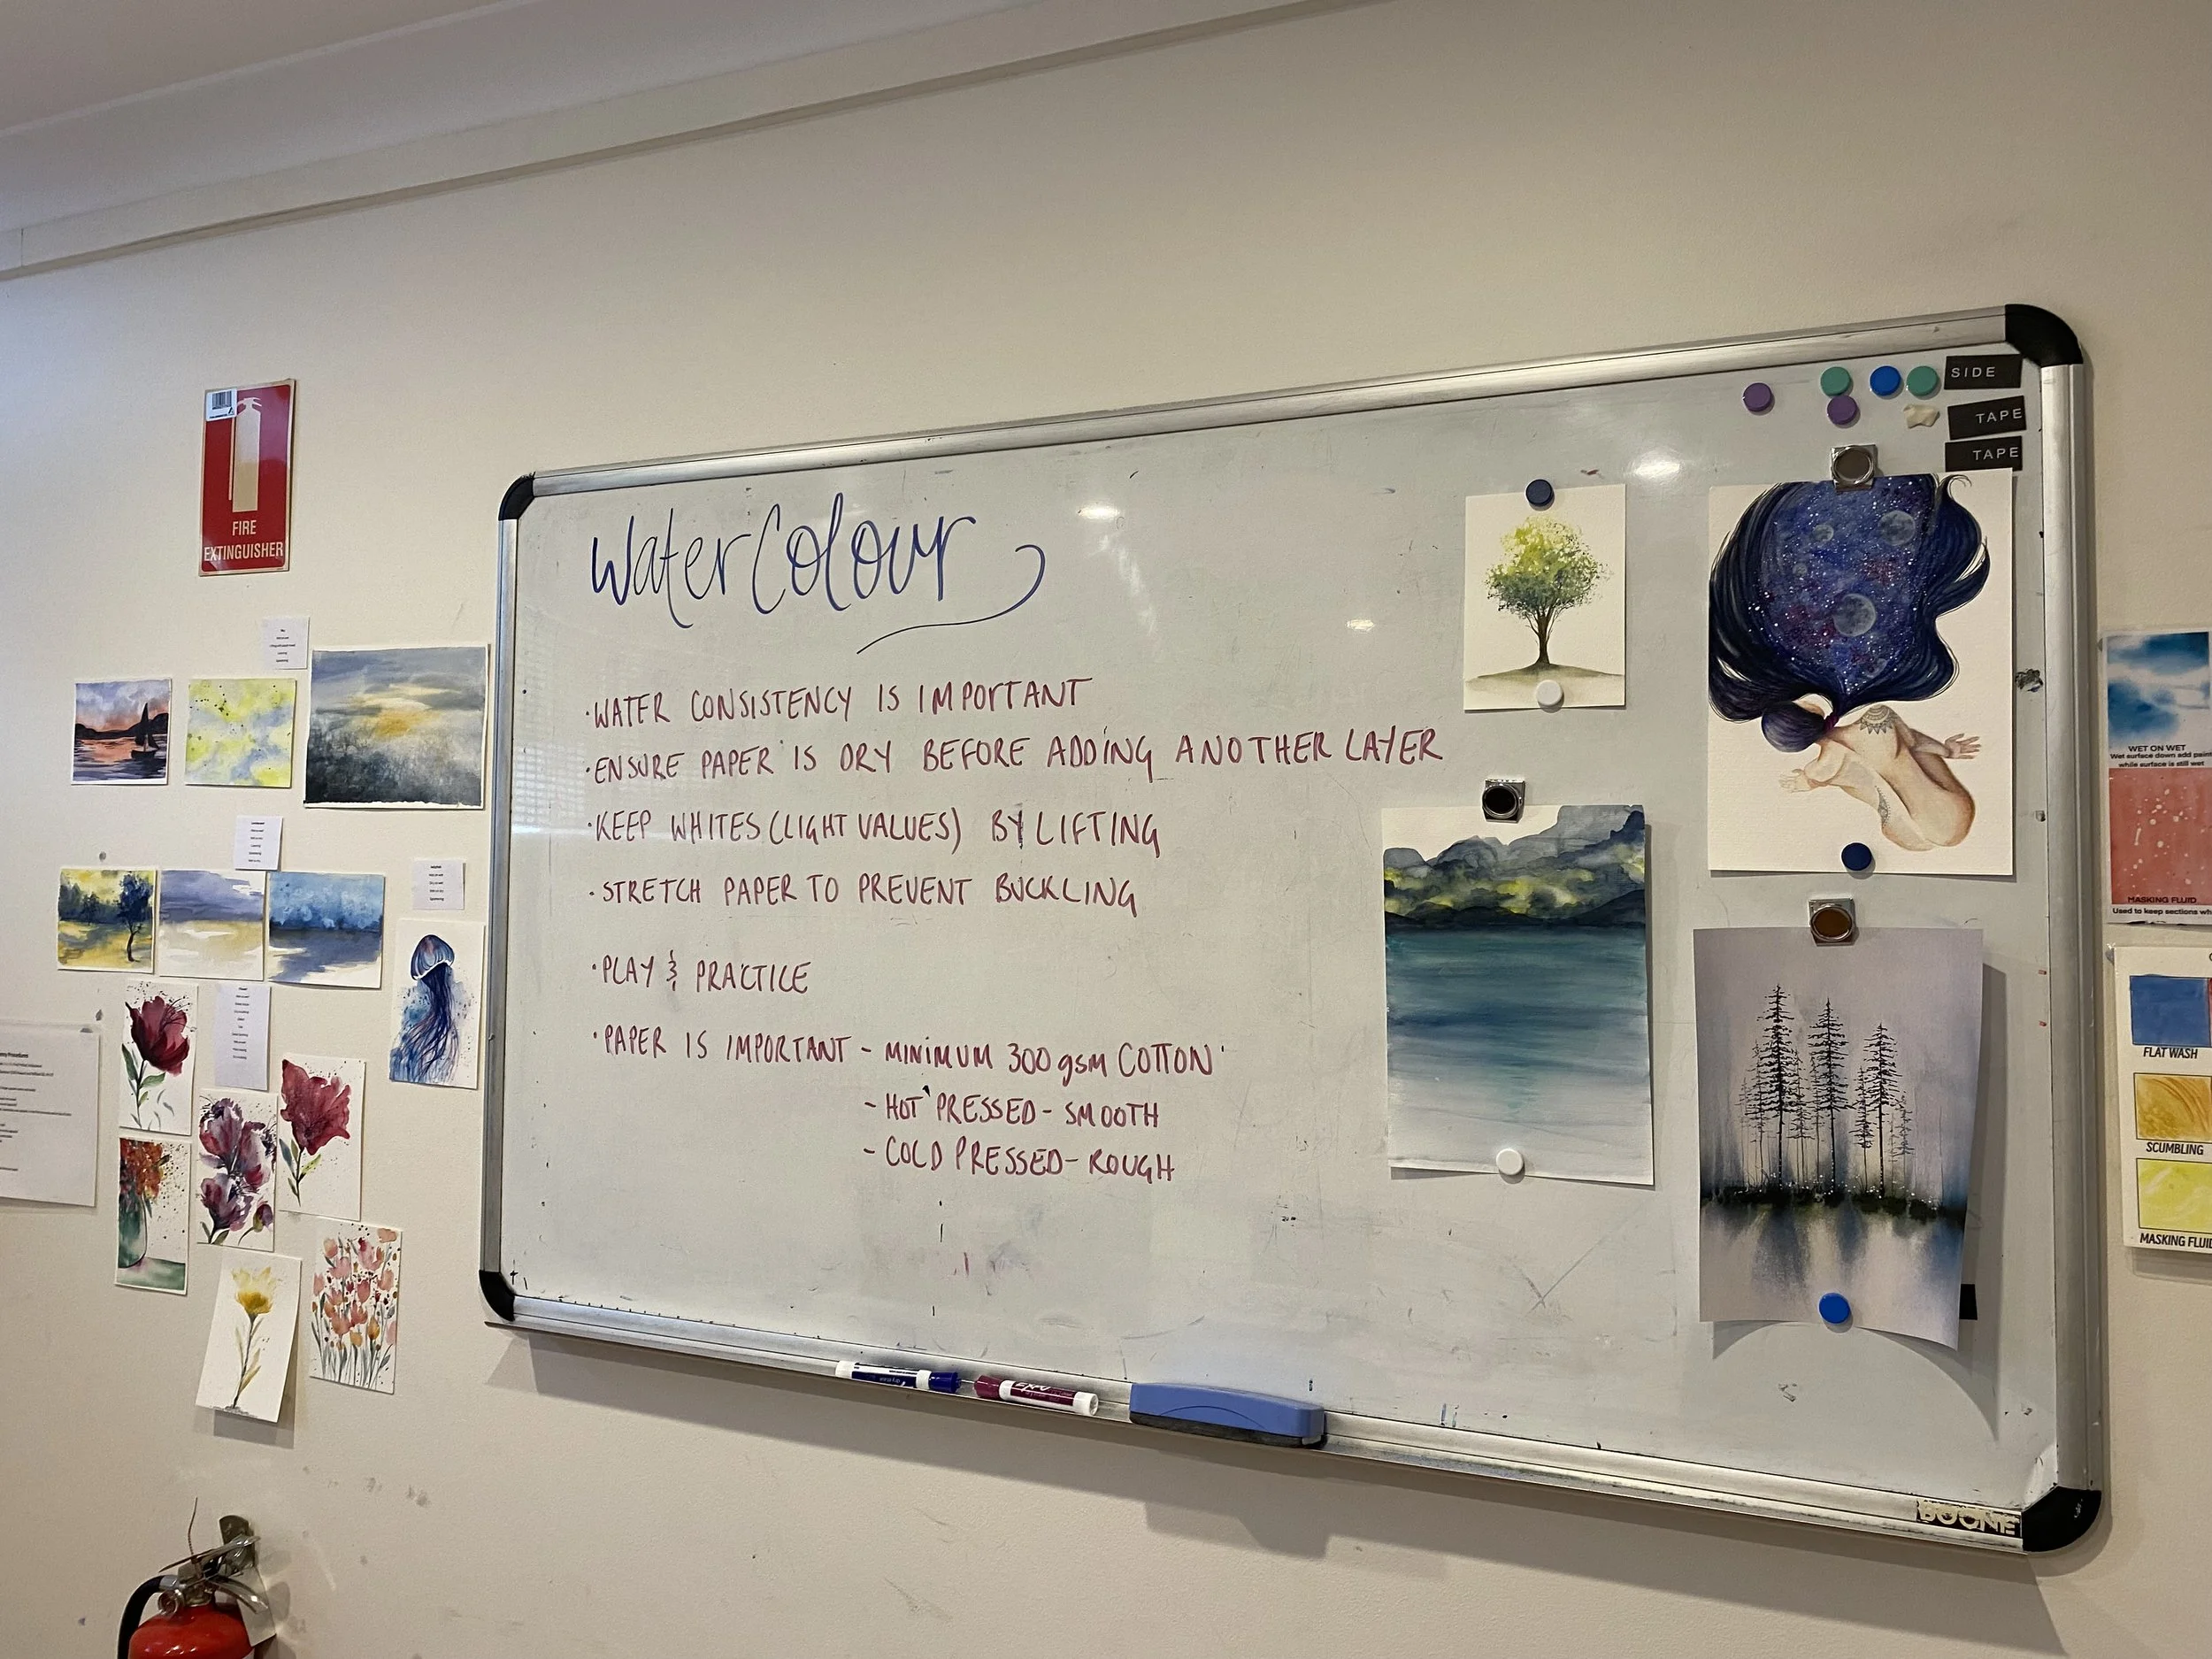 FIRE
EXTINGUISHER
WaterColour
·WATER CONSISTENCY IS IMPORTANT
·ENSURE PAPER IS DRY BEFORE ADDING ANOTHER LAYER
·KEEP WHITES (LIGHT VALUES) BY LIFTING
·STRETCH PAPER TO PREVENT BUCKLING
·PLAY & PRACTICE
·PAPER IS IMPORTANT - MINIMUM 300gsm COTTON
- HOT PRESSED - SMOOTH
- COLD PRESSED - ROUGH
SIDE
TAPE
TAPE
EXPO
BOONE
WET ON WET
Wet surface down add paint
while surface is still wet
MASKING FLUID
Used to keep sections
FLAT WASH
SCUMBLING
MASKING FLUID